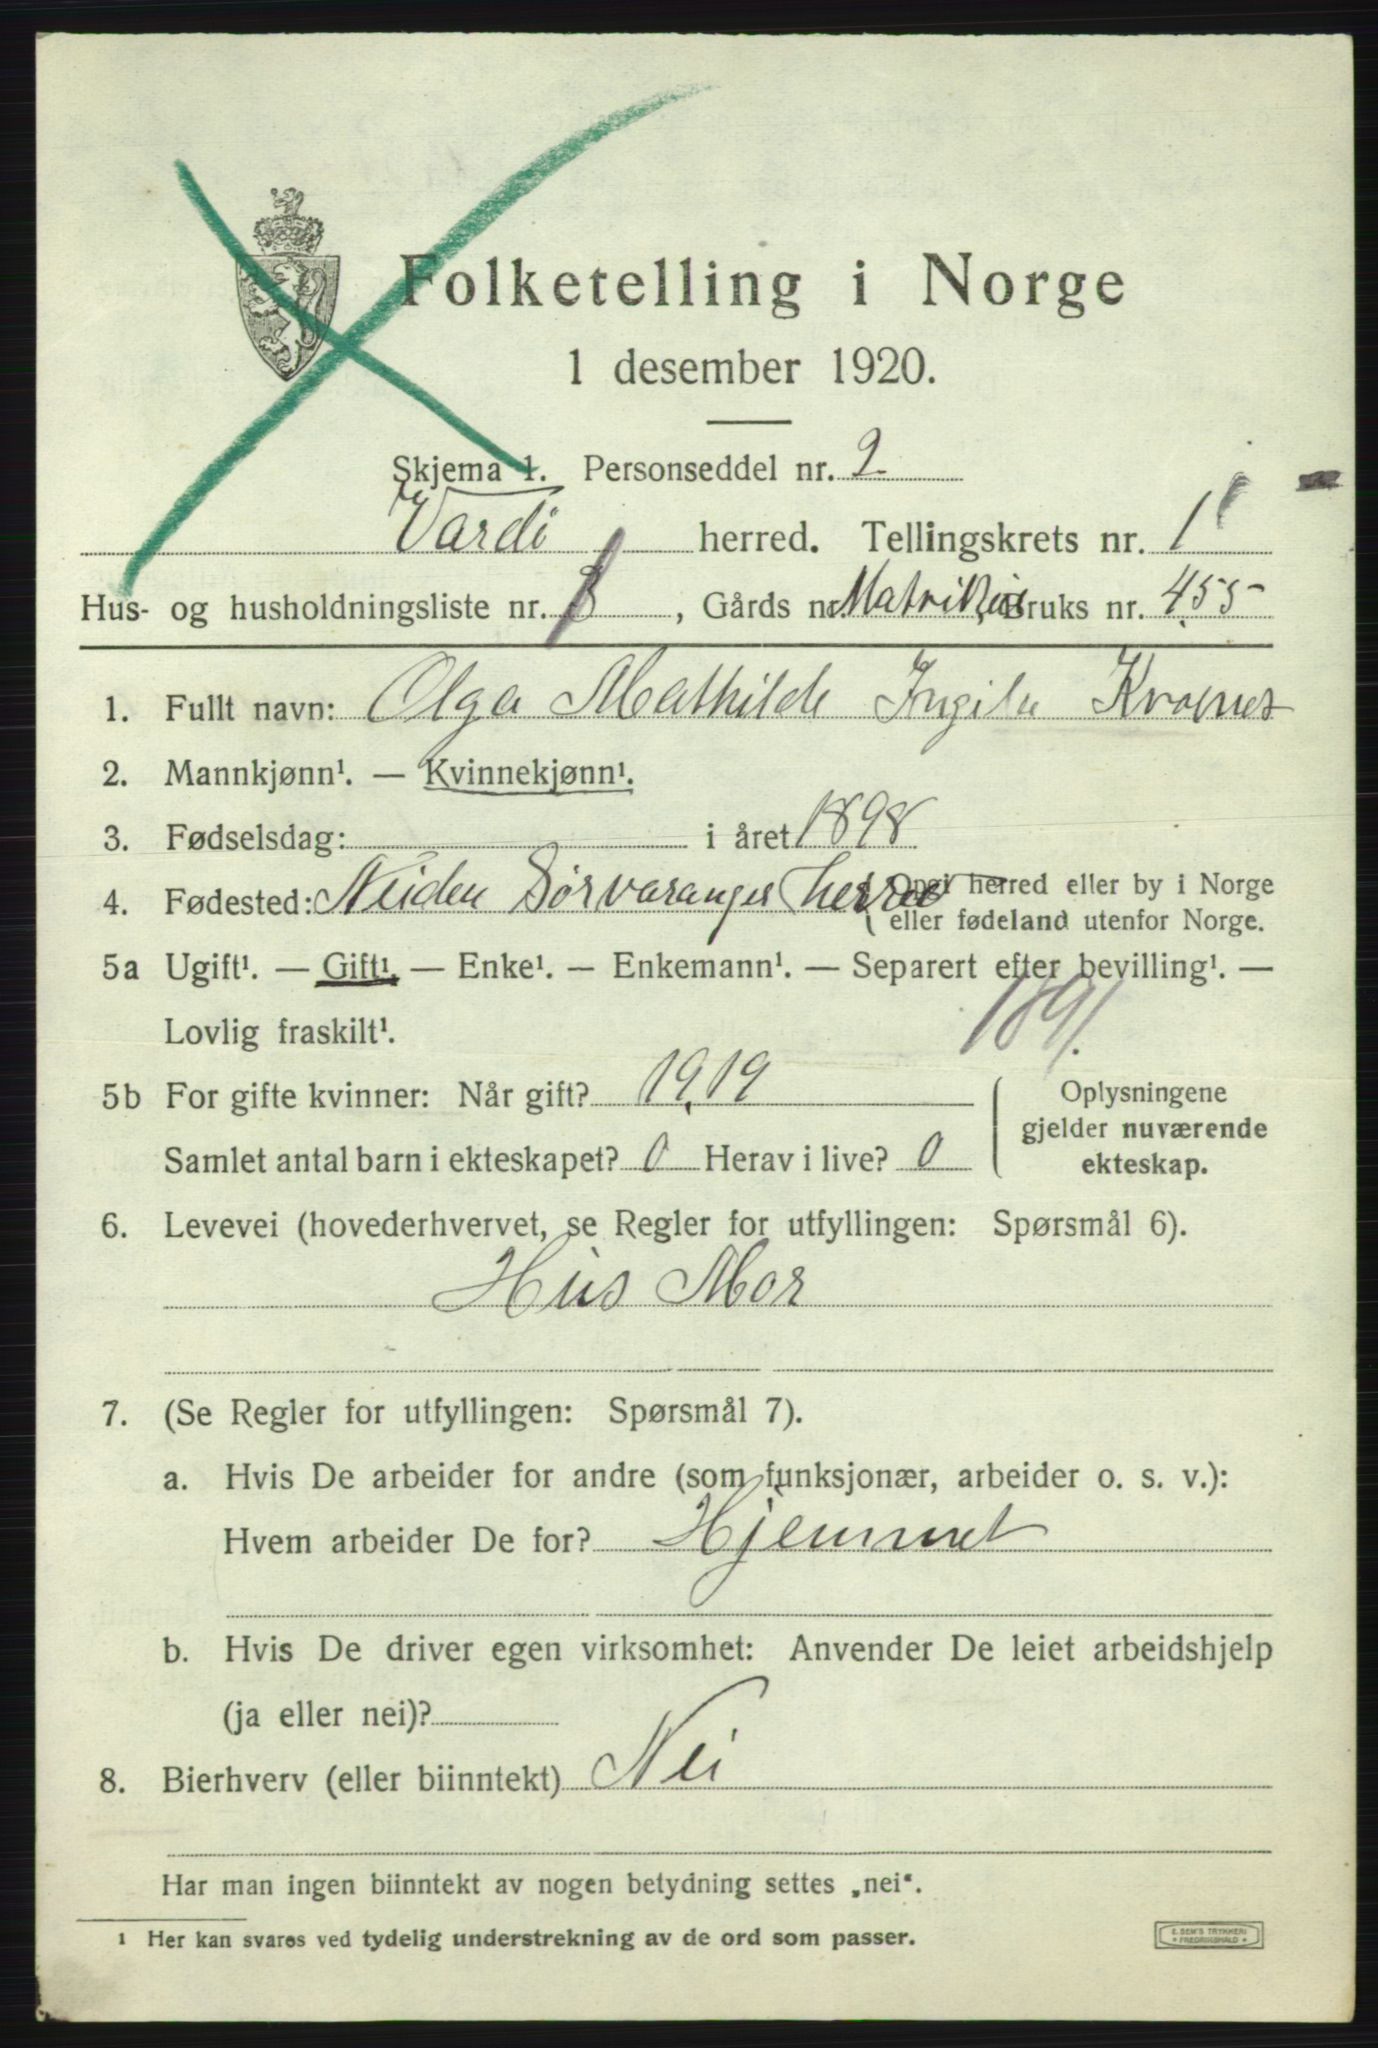 Folketelling i Norge
1 desember 1920.
Skjema 1. Personseddel nr. 2
Vardö herred. Tellingskrets nr. 1
Hus- og husholdningsliste nr. , Gårds nr. , Bruks nr. 455
1. Fullt navn: Olga Mathilde
2. Mannkjønn¹. — Kvinnekjønn¹.
3. Fødselsdag: i året 1898
4. Fødested: Neiden Sørvaranger herred Opgi herred eller by i Norge
eller fødeland utenfor Norge.
5a Ugift¹. — Gift¹. — Enke¹. — Enkemann¹. — Separert efter bevilling¹. —
Lovlig fraskilt¹. 1891.
5b For gifte kvinner: Når gift? 1919
Samlet antal barn i ekteskapet? 0 Herav i live? 0
Oplysningene
gjelder nuværende
ekteskap.
6. Levevei (hovederhvervet, se Regler for utfyllingen: Spørsmål 6).
Hus Mor
7. (Se Regler for utfyllingen: Spørsmål 7).
a. Hvis De arbeider for andre (som funksjonær, arbeider o. s. v.):
Hvem arbeider De for? Hjemmet
b. Hvis De driver egen virksomhet: Anvender De leiet arbeidshjelp
(ja eller nei)?
8. Bierhverv (eller biinntekt) Nei
Har man ingen biinntekt av nogen betydning settes „nei“.
¹ Her kan svares ved tydelig understrekning av de ord som passer.
E. SEM'S TRYKKERI
FREDRIKSHALD